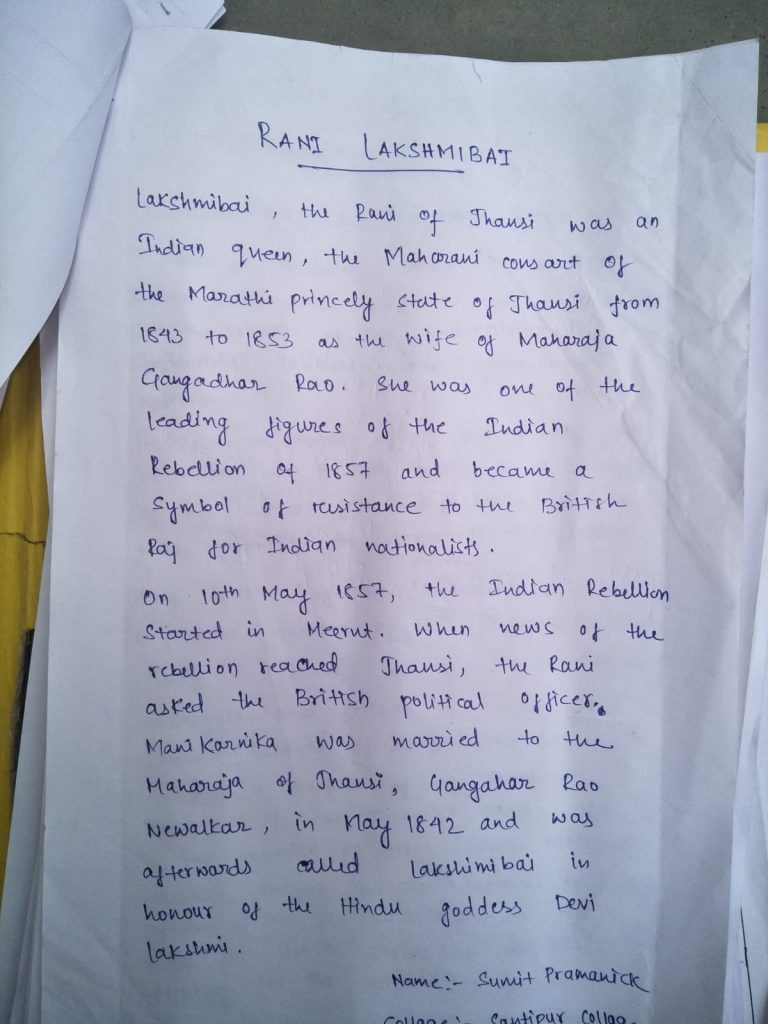 RANI LAKSHMIBAI
Lakshmibai , the Rani of Jhansi was an
Indian queen, the Maharani consart of
the Marathi princely state of Jhansi from
1843 to 1853 as the wife of Maharaja
Gangadhar Rao. She was one of the
leading figures of the Indian
Rebellion of 1857 and became a
symbol of resistance to the British
Raj for Indian nationalists.
On 10th May 1857, the Indian Rebellion
started in Meerut. When news of the
rebellion reached Jhansi, the Rani
asked the British political officer.
Manikarnika was married to the
Maharaja of Jhansi, Gangahar Rao
Newalkar, in May 1842 and was
afterwards called Lakshimibai in
honour of the Hindu goddess Devi
Lakshmi.
Name:- Sumit Pramanick
College:- Santipur College